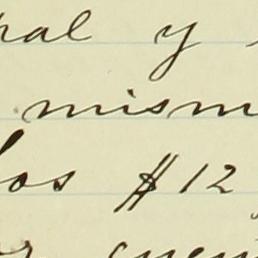 ral y
mism
los $12
or cuen